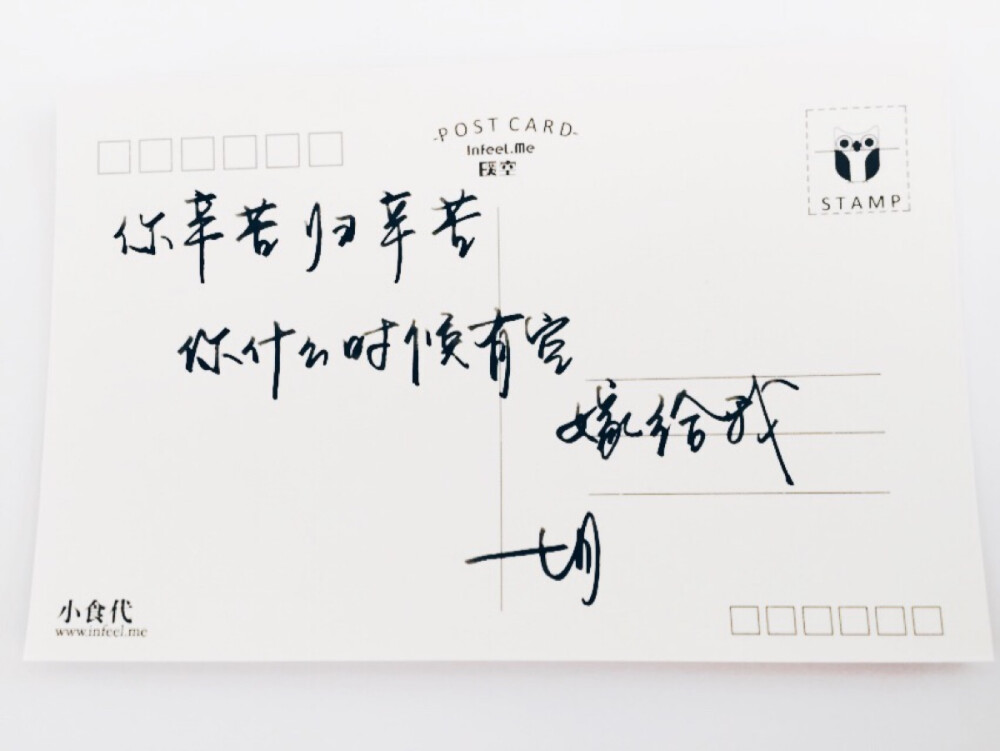 POST CARD
Infeel.Me
暖空
STAMP
你辛苦归辛苦
你什么时候有空
嫁给我
小食代
www.infeel.me